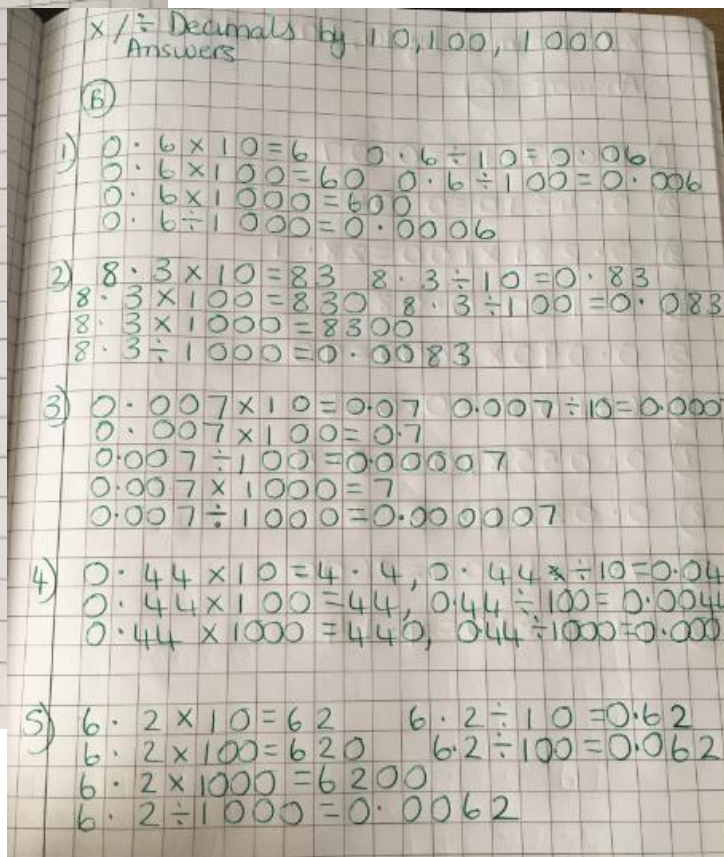 ×/÷ Decimals by 10,100, 1000
Answers
B
1) 0.6×10=6 0.6÷10=0.06
0.6×100=60 0.6÷100=0.006
0.6×1000=600
0.6÷1000=0.0006
2) 8.3×10=83 8.3÷10=0.83
8.3×100=830 8.3÷100=0.083
8.3×1000=8300
8.3÷1000=0.0083
3) 0.007×10=0.07 0.007÷10=0.000
0.007×100=0.7
0.007÷100=0.00007
0.007×1000=7
0.007÷1000=0.000007
4) 0.44×10=4.4, 0.44÷10=0.04
0.44×100=44, 0.44÷100=0.004
0.44×1000=440, 0.44÷1000=0.000
5) 6.2×10=62 6.2÷10=0.62
6.2×100=620 6.2÷100=0.062
6.2×1000=6200
6.2÷1000=0.0062